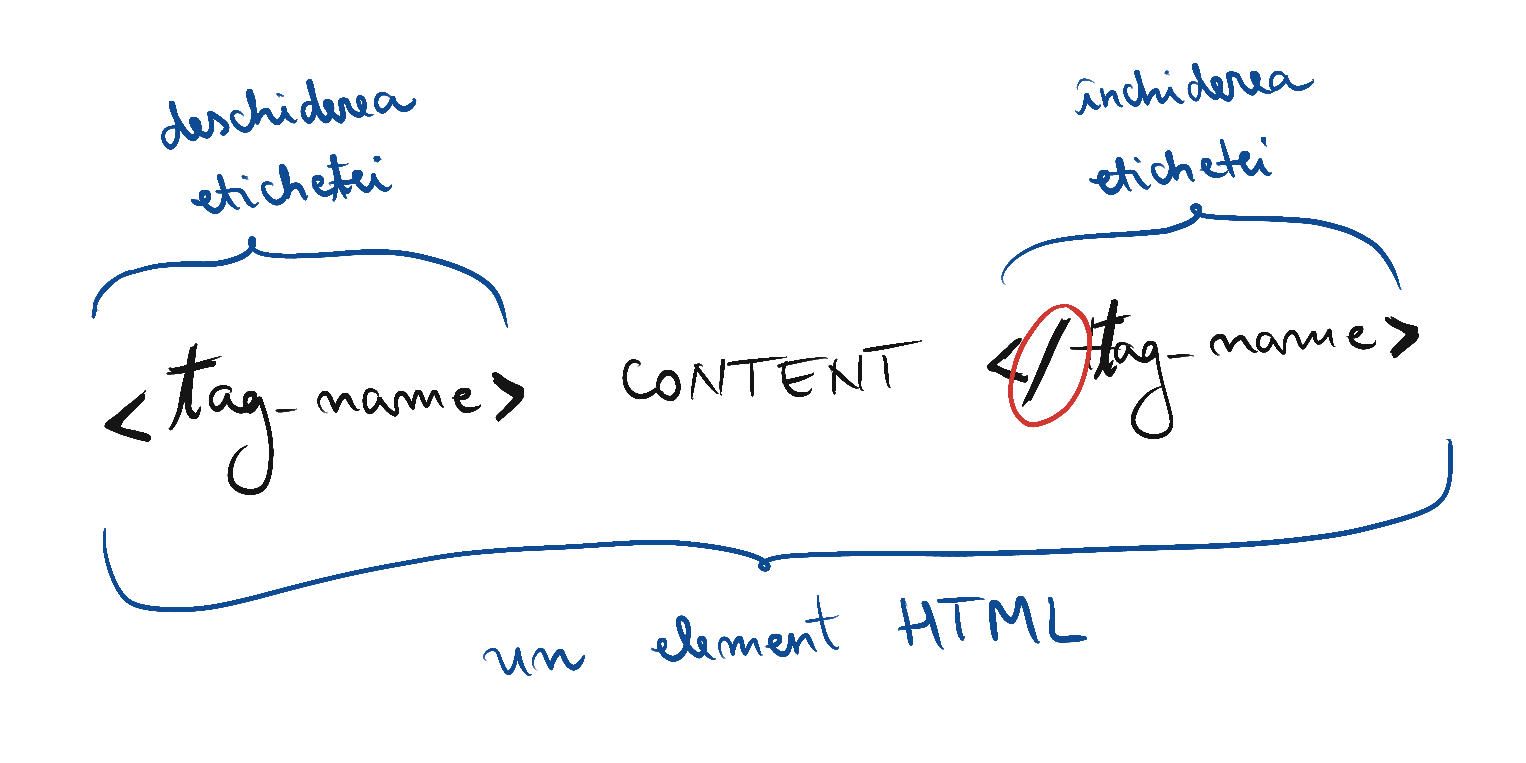 deschiderea
etichetei
închiderea
etichetei
<tag_name> CONTENT </tag_name>
un element HTML